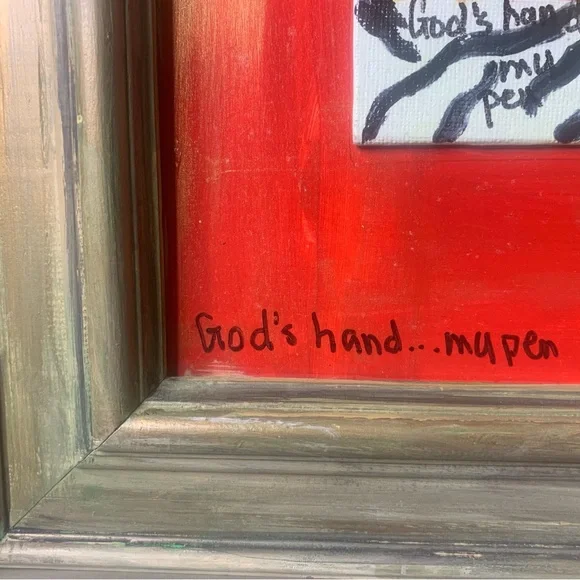 God's hand
my
pen
God's hand...my pen